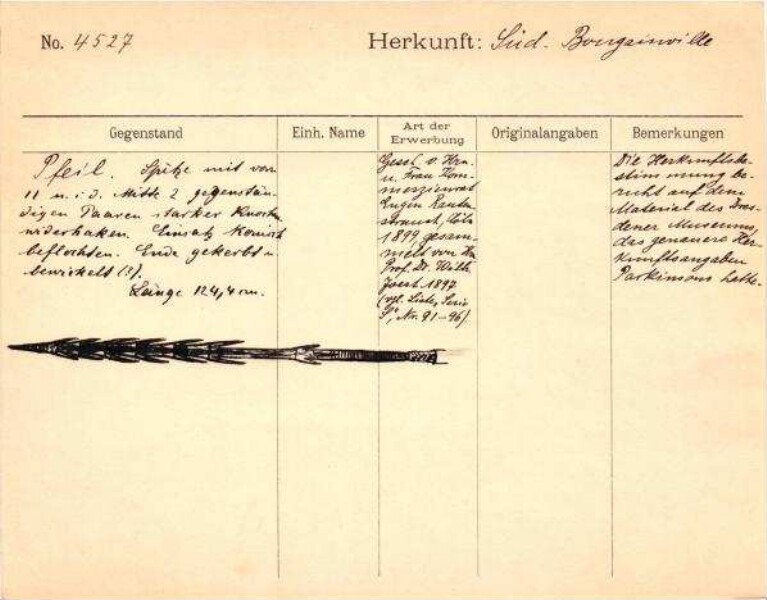 No. 4527
Herkunft: Süd. Bougainville
Gegenstand
Einh. Name
Art der Erwerbung
Originalangaben
Bemerkungen
Pfeil. Spitze mit vorn
11 u. i. d. Mitte 2 gegenstän-
digen Paaren starker Knochen
widerhaken. Einsatz konisch
beflochten. Ende gekerbt u.
bewickelt (?).
Länge 124,4 cm.
Gesch. v. Hrn.
u. Frau Kom-
merzienrat
Eugen Rauten-
strauch, Cöln
1899, gesam-
melt von Hrn
Prof. Dr. Wilh.
Joest 1897
(vgl. Liste, Serie
S, Nr. 91-96)
Die Herkunftsbe-
stimmung be-
ruht auf dem
Material des Dres-
dener Museums,
das genauere Her-
kunftsangaben
Parkinsons hatte.